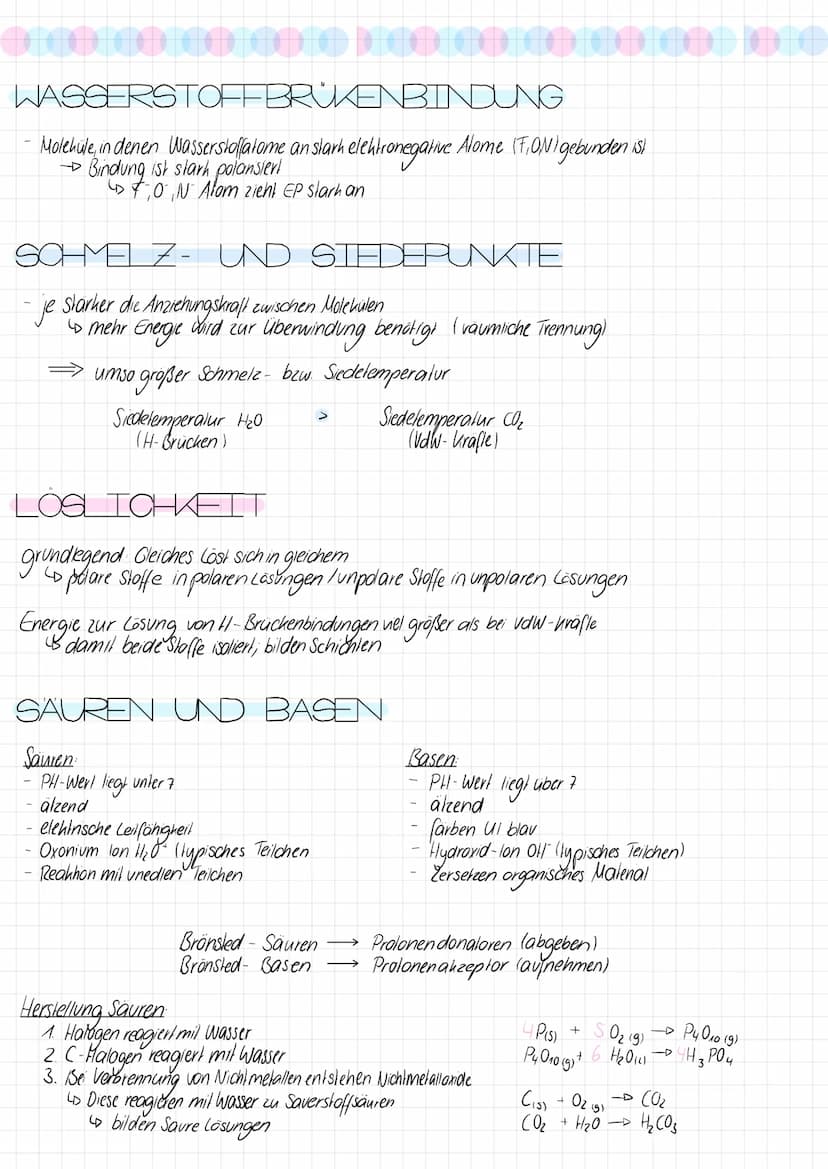 WASSERSTOFFBRÜKENBINDUNG
- Moleküle, in denen Wasserstoffatome an stark elektronegative Atome (F,O,N) gebunden ist
→ Bindung ist stark polarisiert
↳ F-, O-, N- Atom zieht EP stark an
SCHMELZ- UND SIEDEPUNKTE
- je stärker die Anziehungskraft zwischen Molekülen
↳ mehr Energie wird zur Überwindung benötigt (räumliche Trennung)
⇒ umso größer Schmelz- bzw. Siedetemperatur
Siedetemperatur H₂O > Siedetemperatur CO₂
(H-Brücken) (VdW-Kräfte)
LÖSLICHKEIT
grundlegend: Gleiches löst sich in gleichem
↳ polare Stoffe in polaren Lösungen / unpolare Stoffe in unpolaren Lösungen
Energie zur Lösung von H-Brückenbindungen viel größer als bei VdW-Kräfte
↳ damit beide Stoffe isoliert; bilden Schichten
SÄUREN UND BASEN
Säuren: Basen:
- PH-Wert liegt unter 7 - PH-Wert liegt über 7
- ätzend - ätzend
- elektrische Leitfähigkeit - färben UI blau
- Oxonium Ion H₃O⁺ (typisches Teilchen - Hydroxid-Ion OH⁻ (typisches Teilchen)
- Reaktion mit unedlen Teilchen - Zersetzen organisches Material
Brönsted - Säuren → Protonendonatoren (abgeben)
Brönsted- Basen → Protonenakzeptor (aufnehmen)
Herstellung Säuren:
1. Halogen reagiert mit Wasser 4P(s) + 5 O₂ (g) → P₄O₁₀ (g)
2. C-Halogen reagiert mit Wasser P₄O₁₀ (g) + 6 H₂O(l) → 4H₃PO₄
3. Bei Verbrennung von Nichtmetallen entstehen Nichtmetalloxide
↳ Diese reagieren mit Wasser zu Sauerstoffsäuren C(s) + O₂ (g) → CO₂
↳ bilden Saure Lösungen CO₂ + H₂O → H₂CO₃